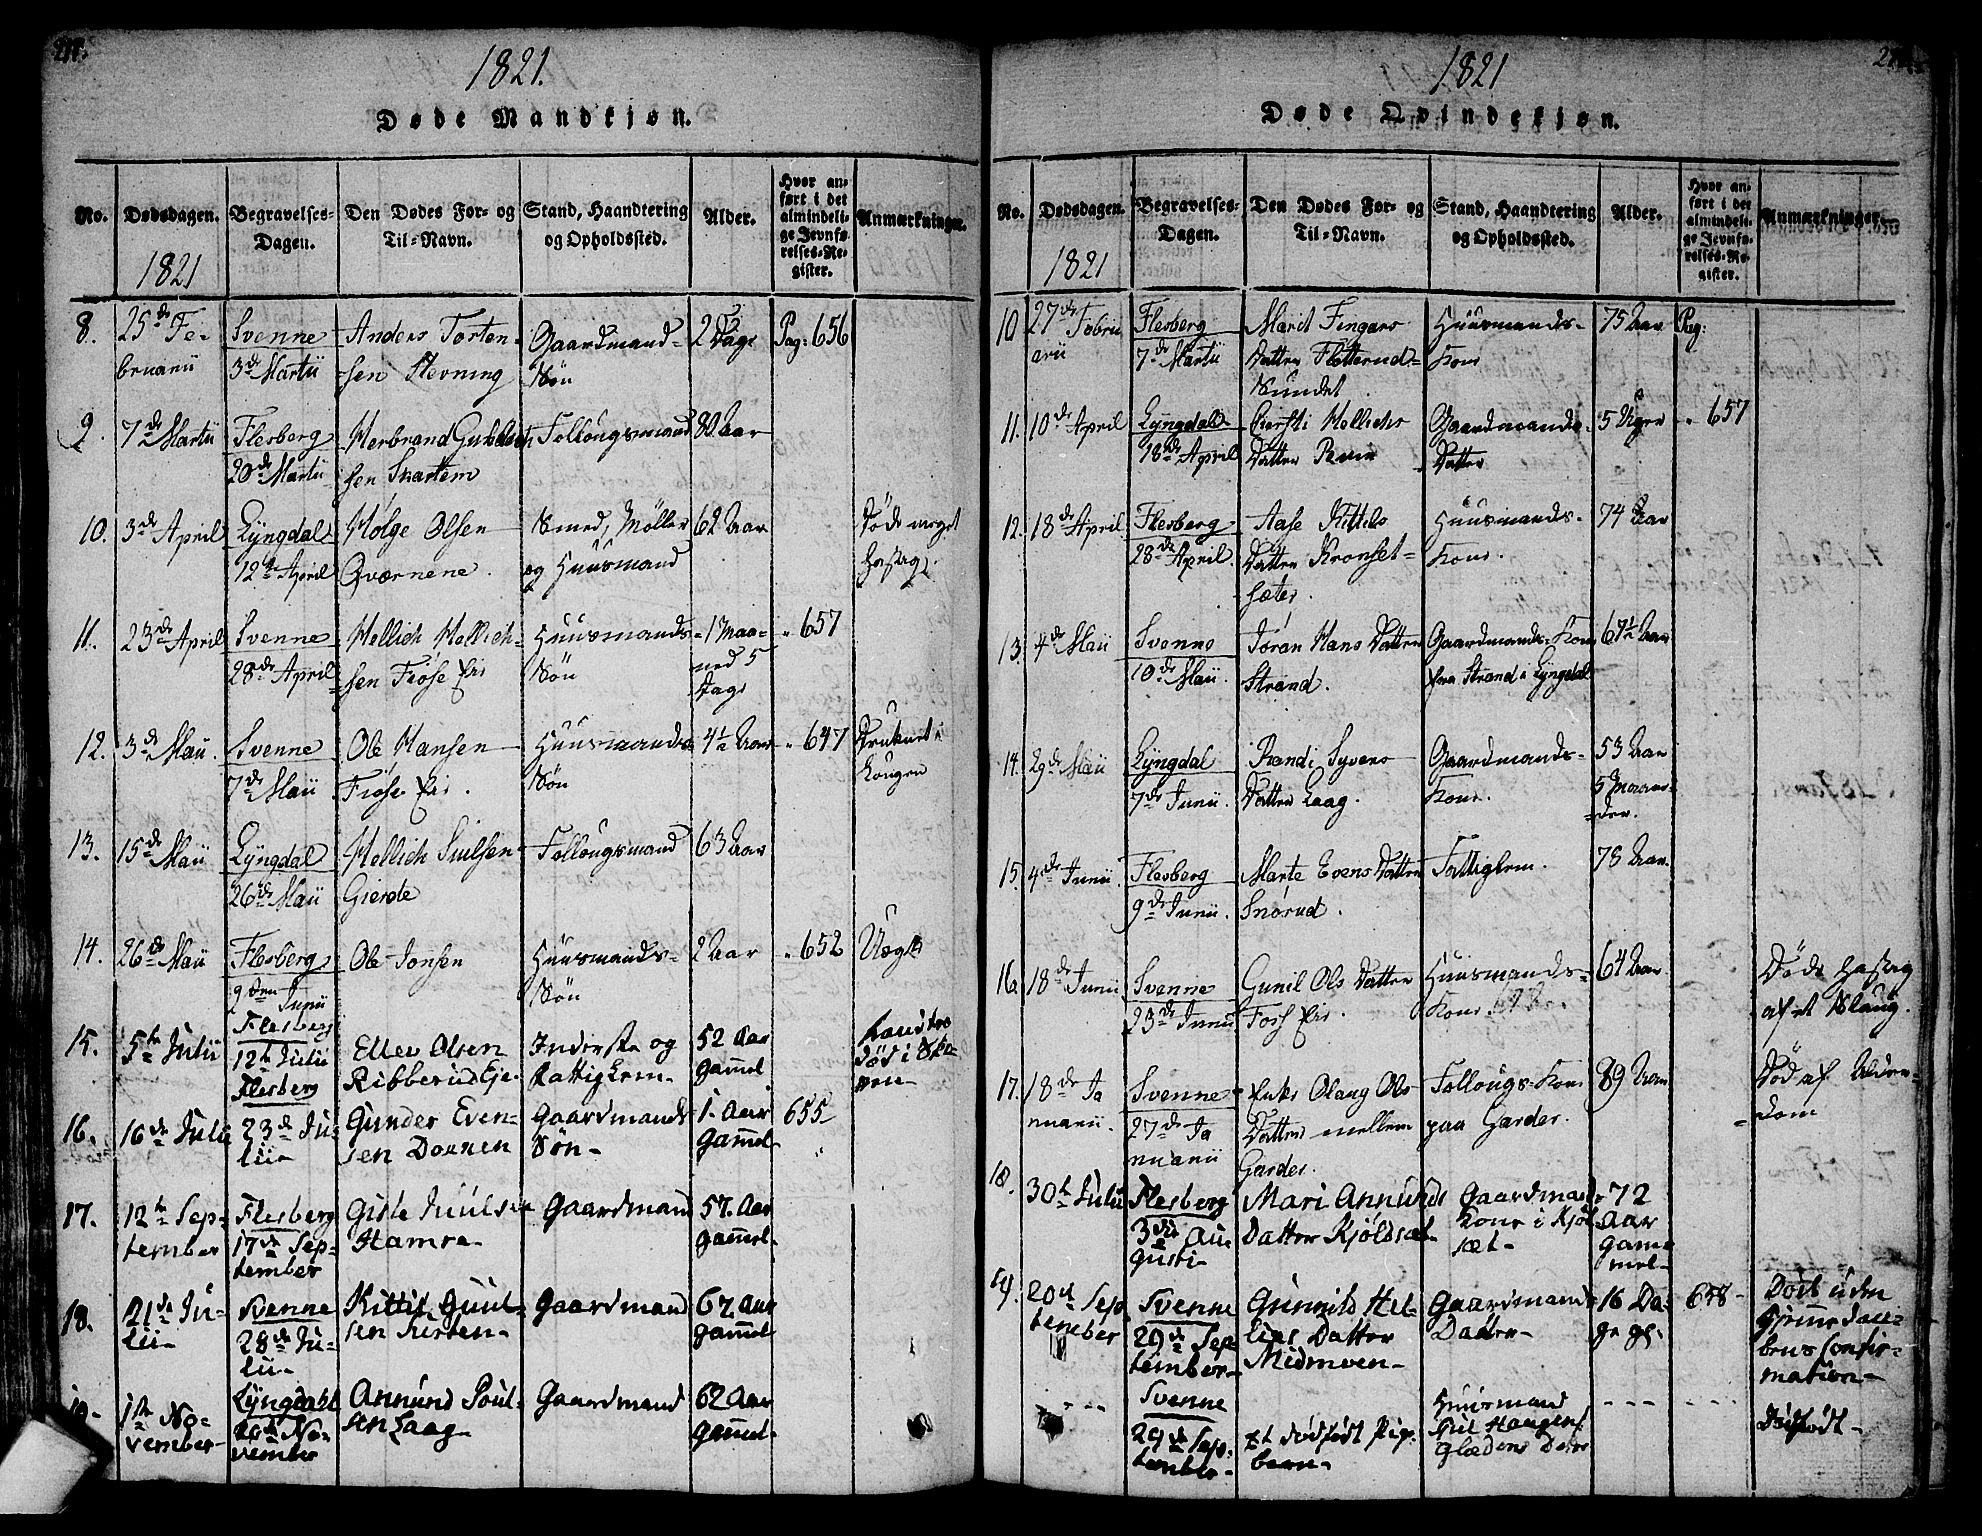 1821.
Døde Mandkjøn.
No.
Dødsdagen.
1821
Begravelses-
Dagen.
Den Dødes For- og
Til-Navn.
Stand, Haandtering
og Opholdssted.
Alder.
Hvor an-
ført i det
almindeli-
ge Jevnfø-
relses-Re-
gister.
Anmærkninger.
8.
25de Fe-
bruarii
Svenne
3de Martii
Anders Torten-
sen
Gaardmand-
Søn
2 Dage
Pag: 656
9.
7de Martii
Flesberg
20de Martii
Herbrand
sen
Follougsmand
80 Aar
10.
3de April
Lyngdal
12te April
Holge Olsen
Qværnene.
Smed, Møller
og Huusmand
62 Aar
Døde meget
hastig.
11.
23de April
Svenne
28de April
Hellich Hellich-
sen Fiose Eie
Huusmands-
Søn
1 Maa-
ned 5
Dage
" 657
12.
3de Maii.
Svenne
7de Maii
Ole Hansen
Fiose Eie.
Huusmands
Søn
4½ Aar
" 647
Druknet i
Lougen
13.
15de Maii
Lyngdal
26de Maii
Hellich
Gierde
Follougsmand
63 Aar
14.
26de Maii
Flesberg
9den Junii
Ole Jonsen
Huusmands-
Søn
2 Aar
" 652
15.
5te Julii
Flesberg
12te Julii
Ellev Olsen
Ribberud Eje
Inderste og
Fattiglem-
52 Aar
gamel
død i Sko-
ven-
16.
16de Julii
Flesberg
23de Ju-
lii-
Gunder Even-
sen Dornen
Gaardmands
Søn-
1. Aar
gamel-
655
17.
12te Sep-
tember
Flesberg
17de Sep-
tember
Gisle Juulsen
Hamre-
Gaardmand
57. Aar
gamel-
18.
21de Ju-
lii-
Svenne
28de Ju-
lii-
Kittil Guul-
sen
Gaardmand
67. Aar
gamel-
19-
1te No-
vember-
Lyngdahl
No-
vember
Annund Poul-
sen Laag-
Gaardmand
62 Aar
gamel-
1821
Døde Qvindekjøn.
No.
Dødsdagen.
1821
Begravelses-
Dagen.
Den Dødes For- og
Til-Navn.
Stand, Haandtering
og Opholdssted.
Alder.
Hvor an-
ført i det
almindeli-
ge Jevnfø-
relses-Re-
gister.
Anmærkninger.
10
27de Febru
arii
Flesberg
7de Martii
Marit Fingars
Datter
Sundet.
Huusmands-
Kone
75 Aar
Pag:
11.
10de April
Lyngdal
18de April
Hellichs
Datter
Gaardmands
Datter
5 Uger
" 657
12.
18de April
Flesberg
28de April
Aase Kittels
Datter Kronset-
sæter.
Huusmands-
Kone.
74 Aar
13.
4de Maii
Svenne
10de Maii.
Jøran Hans Datter
Strand.
Gaardmands-Kone
fra Strand i Lyngdal
67½ Aar
14.
29de Maii
Lyngdal
7de Junii.
Randi Syvers
Datter Laag.
Gaardmands-
Kone.
53 Aar
5 Maane-
der.
15.
4de Junii.
Flesberg
9de Junii.
Marte Evens Datter
Snörud.
Fattiglem.
78 Aar.
16.
18de Junii
Svenne
23de Junii
Gunil Ols Datter
Foss Eie.
Huusmands-
Kone
64 Aar.
Døde hastig
af et Slaug.
17.
18de Ja
nuarii.
Svenne
27de Ja
nuarii
Enke Olaug Ols
Datter mellem
Garder.
Follougs-Kone
paa Garder.
89 Aar
Død af Alder-
dom
18.
30te Julii
Flesberg
3die Au-
gusti-
Mari Annunds
Datter Kjöldsæt-
Gaardmands-
Kone i Kjöl
sæt-
72
Aar
game
mel-
19.
20de Sep-
tember
Svenne
29de Sep-
tember-
Gunnild Hel-
liks Datter
Midmoen-
Gaardmands
Datter-
16 Da-
ge gl.
658-
Død uden
Hjemmedaa-
bens Confir-
mation-
- - -
Svenne
29de Sep-
tember-
et dödfödt Pige-
barn-
Huusmand
- - -
- - -
Dödfödt-